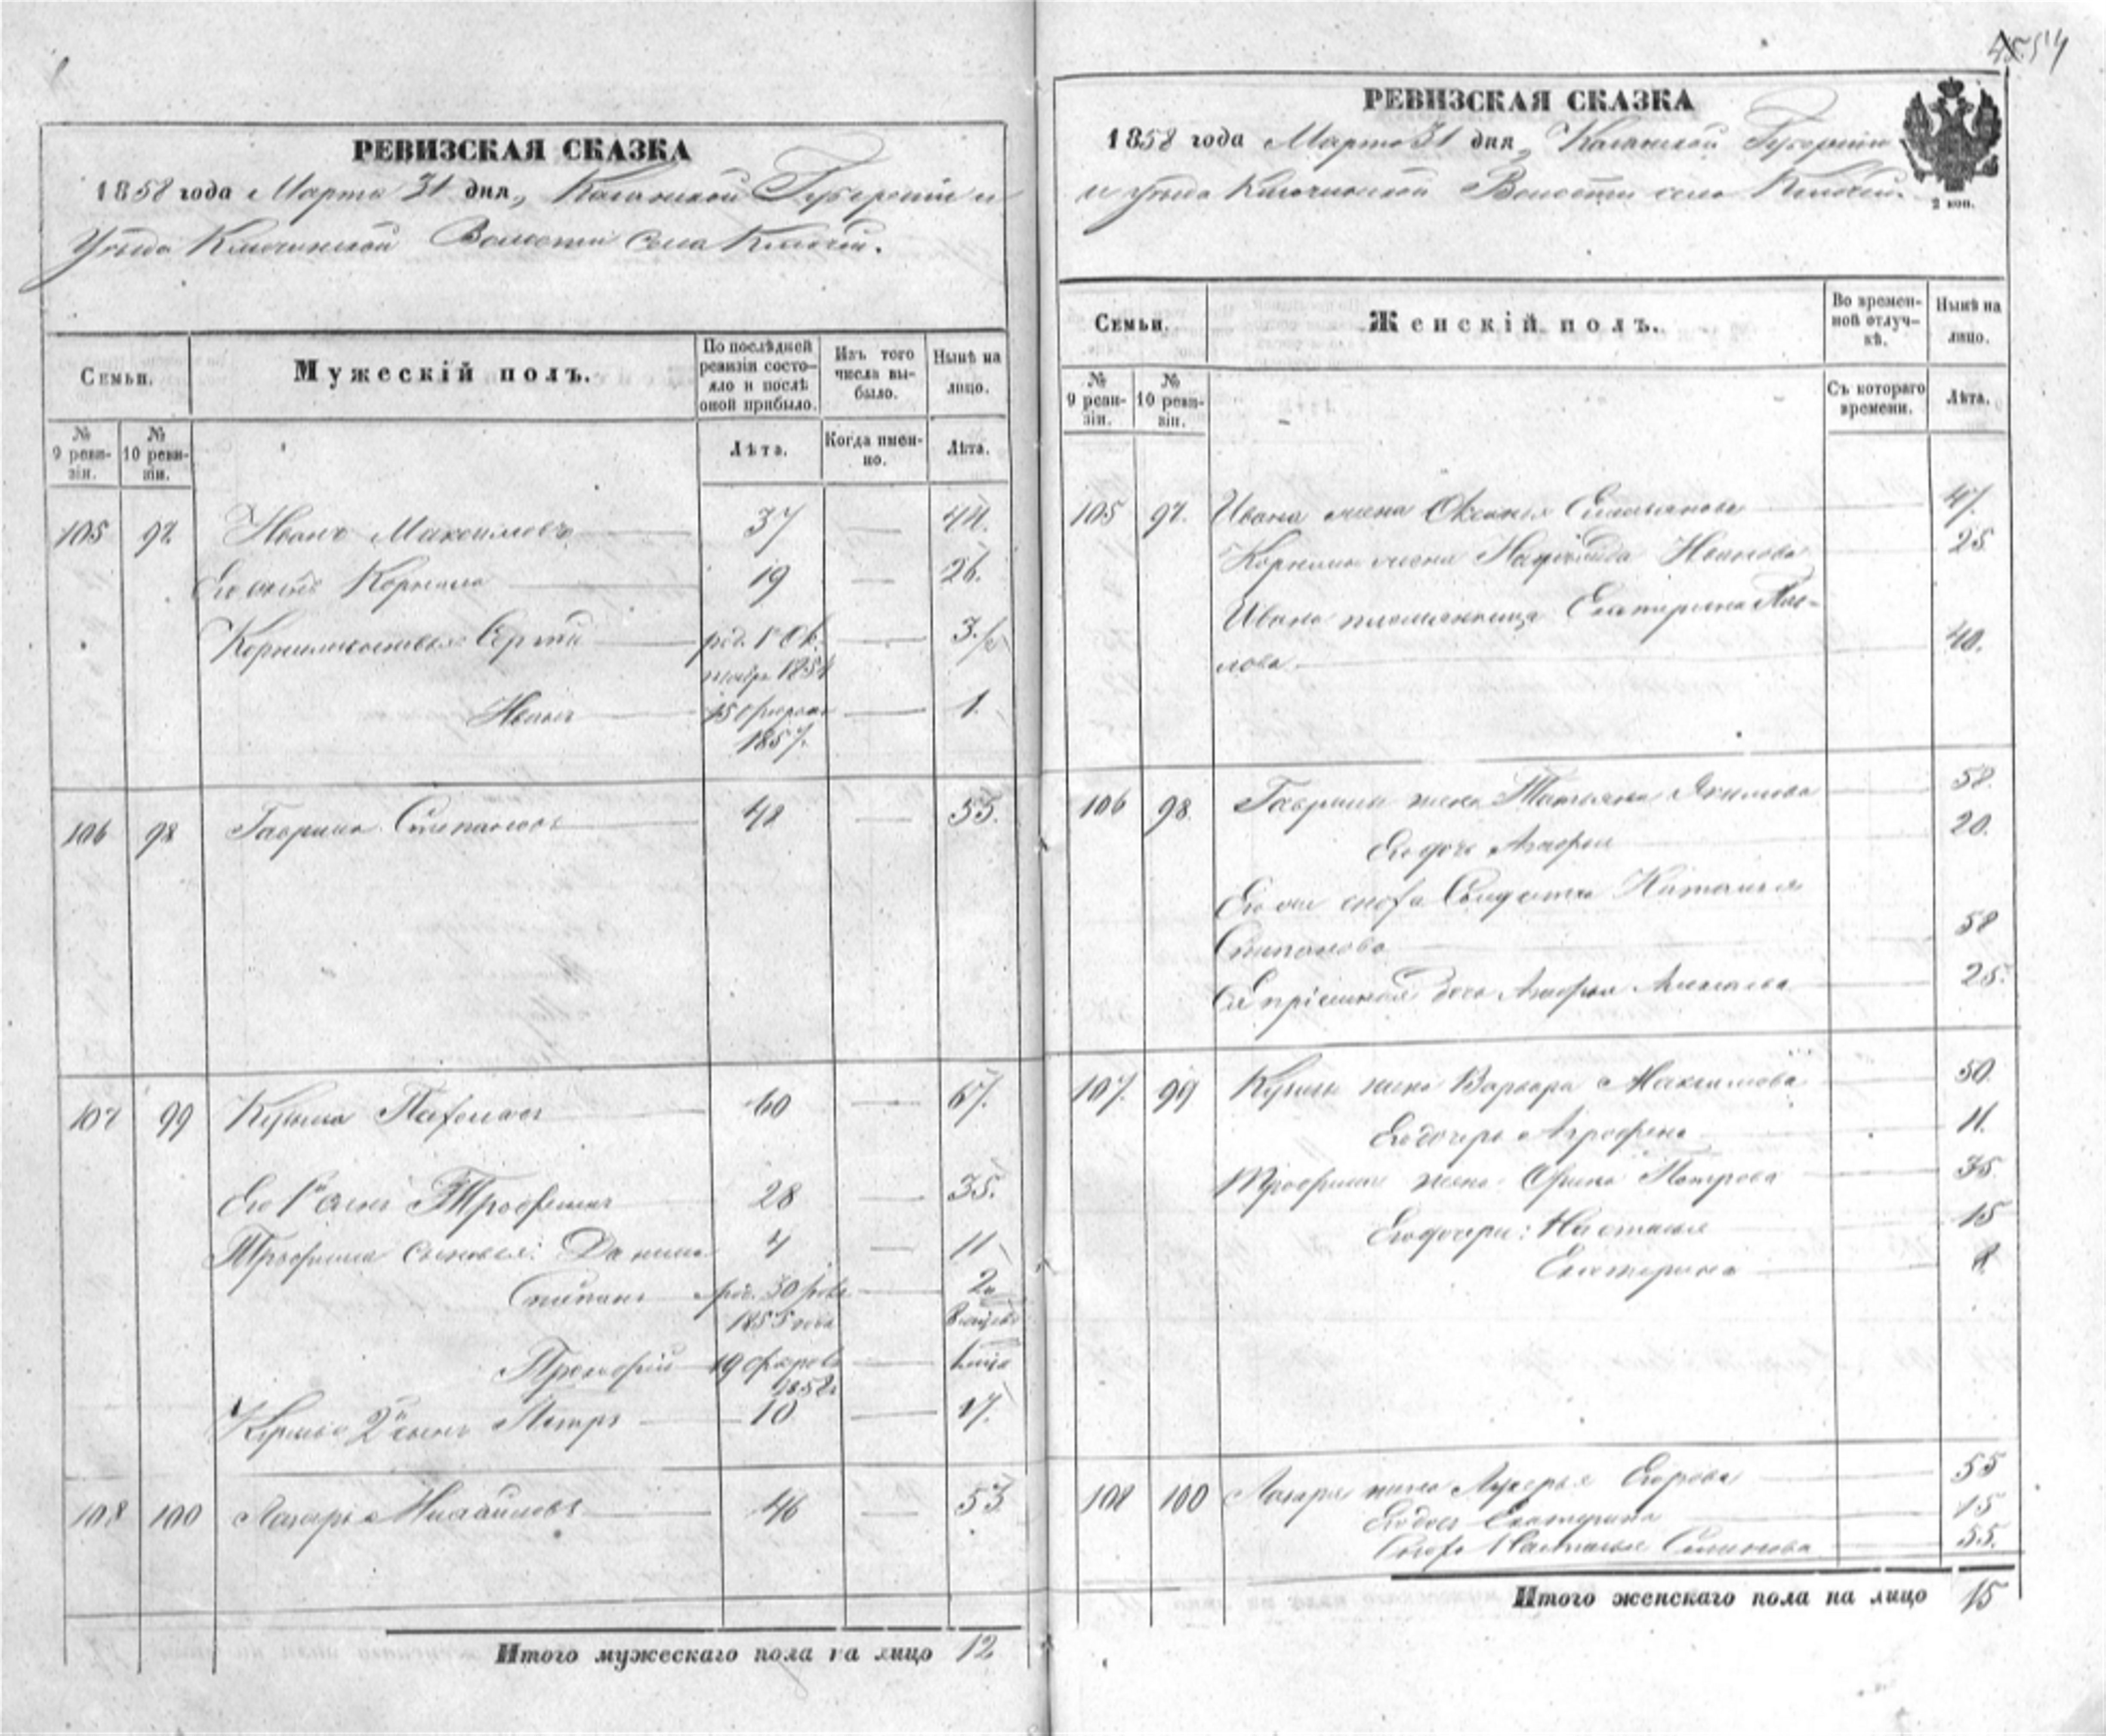 45. 54
РЕВИЗСКАЯ СКАЗКА
1858 года Марта 31 дня, Казанской Губернiи и
Уѣзда Ключинской Волости Села Ключи.
Семьи.
Мужескій полъ.
По послѣдней ревизіи состояло и послѣ оной прибыло.
Изъ того числа выбыло.
Нынѣ на лицо.
№ 9 ревизіи.
№ 10 ревизіи.
Лѣта.
Когда именно.
Лѣта.
105 97 Иванъ Максимовъ 37 — 44.
Его сынъ Корнило 19 — 26.
Корниловы сыновья Сергѣй род. 1 Ок- — 3 1/2
тября 1854
Иванъ 15 февраля — 1.
1857.
106 98 Гаврила Степановъ 48 — 55.
107 99 Кузьма 60 — 67.
Его 1й сынъ Трофимъ 28 — 35.
Трофима сыновья: Данила 4 — 11
Степанъ род. 30 — 2
1855 года
Прокофій 19 февраля —
1858
Кузьмы 2й сынъ Петръ 10 — 17.
108 100 Лазарь Михайловъ 46 — 53
Итого мужескаго пола на лицо 12
РЕВИЗСКАЯ СКАЗКА
1858 года Марта 31 дня, Казанской Губерніи
и уѣзда Ключинской Волости села Ключи.
2 коп.
Семьи.
Женскій полъ.
Во временной отлучкѣ.
Нынѣ на лицо.
№ 9 ревизіи.
№ 10 ревизіи.
Съ котораго времени.
Лѣта.
105 97. Ивана жена Оксинья Емельянова — 47.
Корнилы жена Ивановa — 25
Ивана племянница Екатерина Пав-
лова — 40.
106 98. Гаврилы жена Татьяна Якимова — 58.
Его дочь Агафья 20.
Его же сноха Солдатка Наталья
Степанова — 58
Ея пріемная дочь Агафья Алексѣева — 25.
107. 99 Кузьмы жена Варвара Максимова — 50.
Его дочерь Аграфена — 11.
Трофима жена Орина Петрова — 35.
Его дочери: Настасья — 15
Екатерина — 8
108 100 Лазаря жена Лукерья Егорова — 55
Его дочь Екатерина — 15
Сноха Настасья Семенова — 55.
Итого женскаго пола на лицо 15